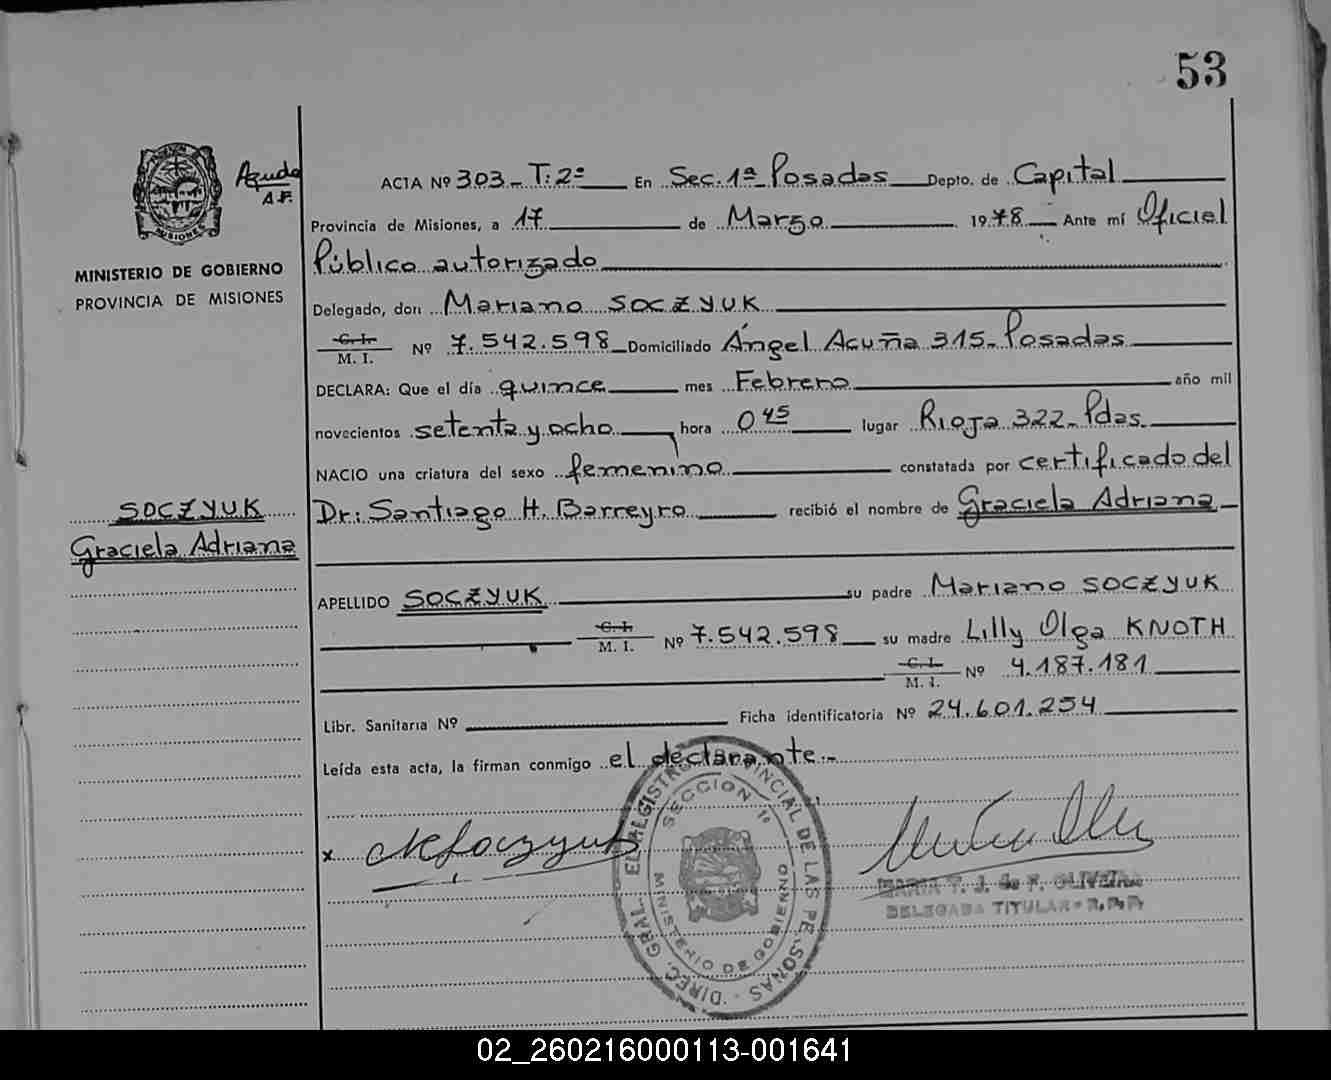 53
Aguda
A.F.
MINISTERIO DE GOBIERNO
PROVINCIA DE MISIONES
ACTA Nº 303 - T: 2º En Sec. 1ª Posadas Depto. de Capital
Provincia de Misiones, a 17 de Marzo 1978 Ante mí Oficial
Público autorizado
Delegado, don Mariano SOCZYUK
C. I.
M. I. Nº 7.542.598 Domiciliado Ángel Acuña 315 - Posadas
DECLARA: Que el día quince mes Febrero año mil
novecientos setenta y ocho hora 0 45 lugar Rioja 322 - Pdas.
NACIO una criatura del sexo femenino constatada por certificado del
SOCZYUK
Graciela Adriana
Dr: Santiago H. Barreyro recibió el nombre de Graciela Adriana
APELLIDO SOCZYUK su padre Mariano SOCZYUK
C. I.
M. I. Nº 7.542.598 su madre Lilly Olga KNOTH
C. I.
M. I. Nº 4.187.181
Libr. Sanitaria Nº Ficha identificatoria Nº 24.601.254
Leída esta acta, la firman conmigo el declarante.-
x
SECCION 1ª
MINISTERIO DE GOBIERNO
MARIA T. J. de F. OLIVEIRA
DELEGADA TITULAR - R. P. P.
02_260216000113-001641